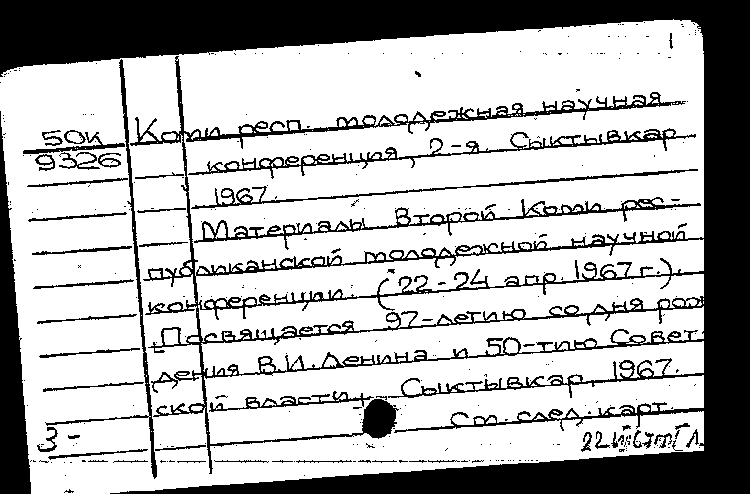 1
50к
9326
Коми респ. молодежная научная
конференция, 2-я. Сыктывкар
1967.
Материалы Второй Коми рес-
публиканской молодежной научной
конференции. (22-24 апр. 1967 г.).
[Посвящается 97-летию со дня рож
дения В.И. Ленина и 50-тию Совет-
ской власти]. Сыктывкар, 1967.
См. след. карт.
3 -